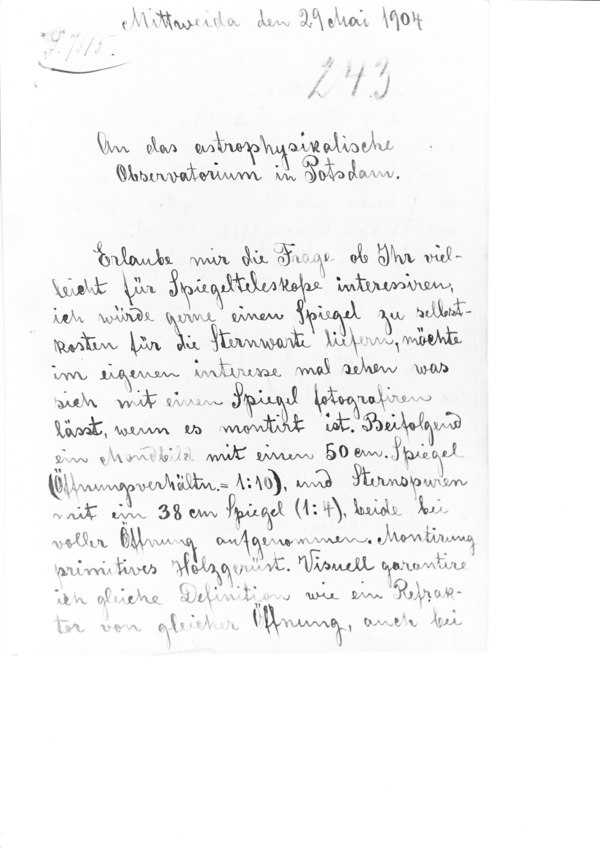 Mittweida den 29 Mai 1904
243
An das astrophysikalische
Observatorium in Potsdam.
Erlaube mir die Frage ob Ihr viel-
leicht für Spiegelteleskope interessiren,
ich würde gerne einen Spiegel zu selbst-
kosten für die Sternwarte liefern, möchte
im eigenen interesse mal sehen was
sich mit einen Spiegel fotografiren
lässt, wenn es montirt ist. Beifolgend
ein Mondbild mit einen 50 cm. Spiegel
(Öffnungsverhältn. = 1:10), und Sternspuren
mit ein 38 cm Spiegel (1:4), beide bei
voller Öffnung aufgenommen. Montirung
primitives Holzgerüst. Visuell garantire
ich gleiche Definition wie ein Refrak-
tor von gleicher Öffnung, auch bei